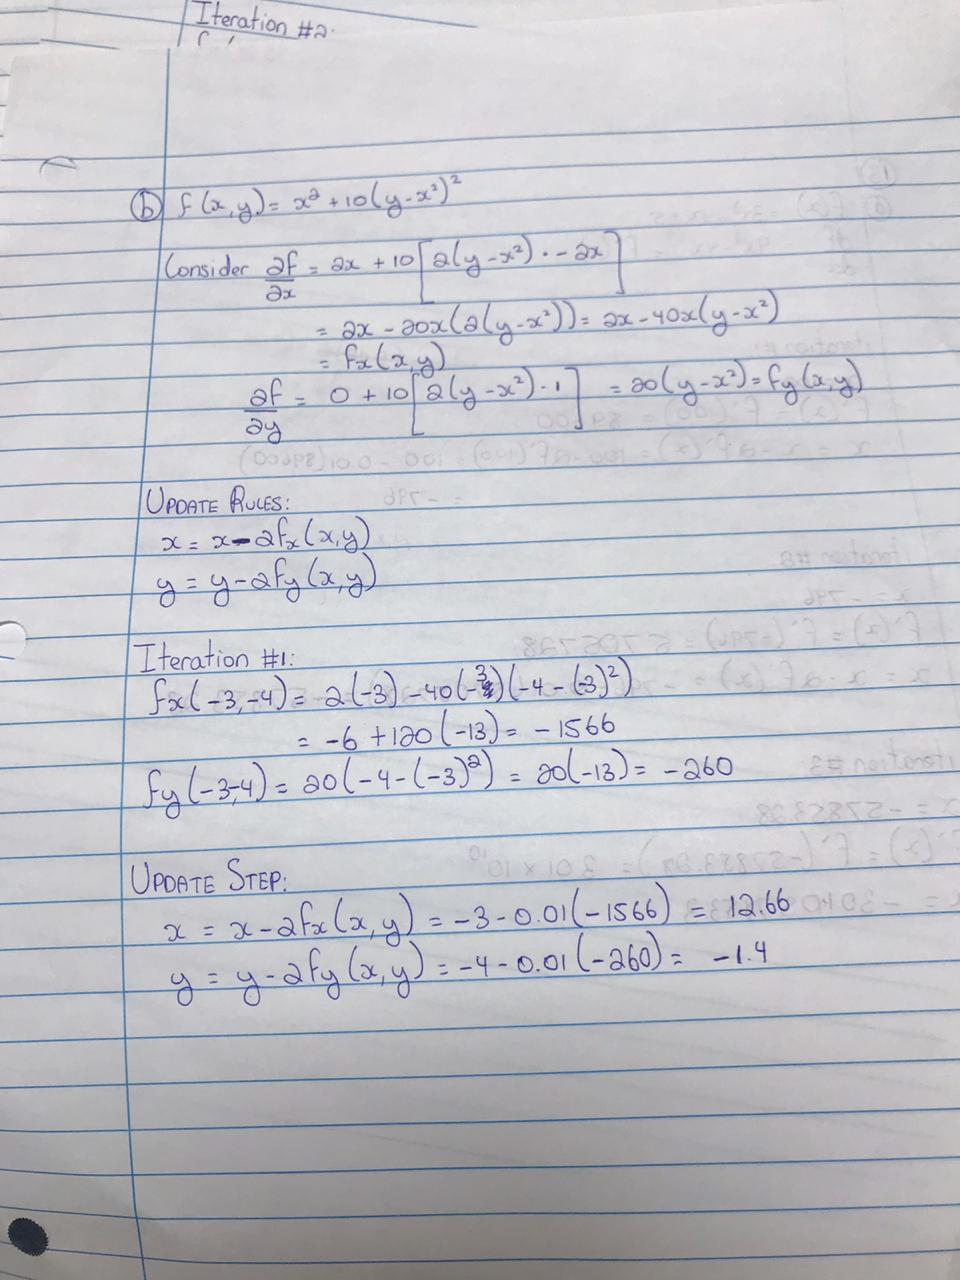 Iteration #2.
(b) f(x,y) = x² + 10(y-x²)²
Consider ∂f/∂x = 2x + 10[2(y-x²)·-2x]
= 2x - 20x(2(y-x²)) = 2x - 40x(y-x²)
= fx(x,y)
∂f/∂y = 0 + 10[2(y-x²)·1] = 20(y-x²) = fy(x,y)
UPDATE RULES:
x = x - 2fx(x,y)
y = y - 2fy(x,y)
Iteration #1:
fx(-3,-4) = 2(-3) - 40(-3)(-4-(-3)²)
= -6 + 120(-13) = -1566
fy(-3,-4) = 20(-4-(-3)²) = 20(-13) = -260
UPDATE STEP:
x = x - 2fx(x,y) = -3 - 0.01(-1566) = 12.66
y = y - 2fy(x,y) = -4 - 0.01(-260) = -1.4